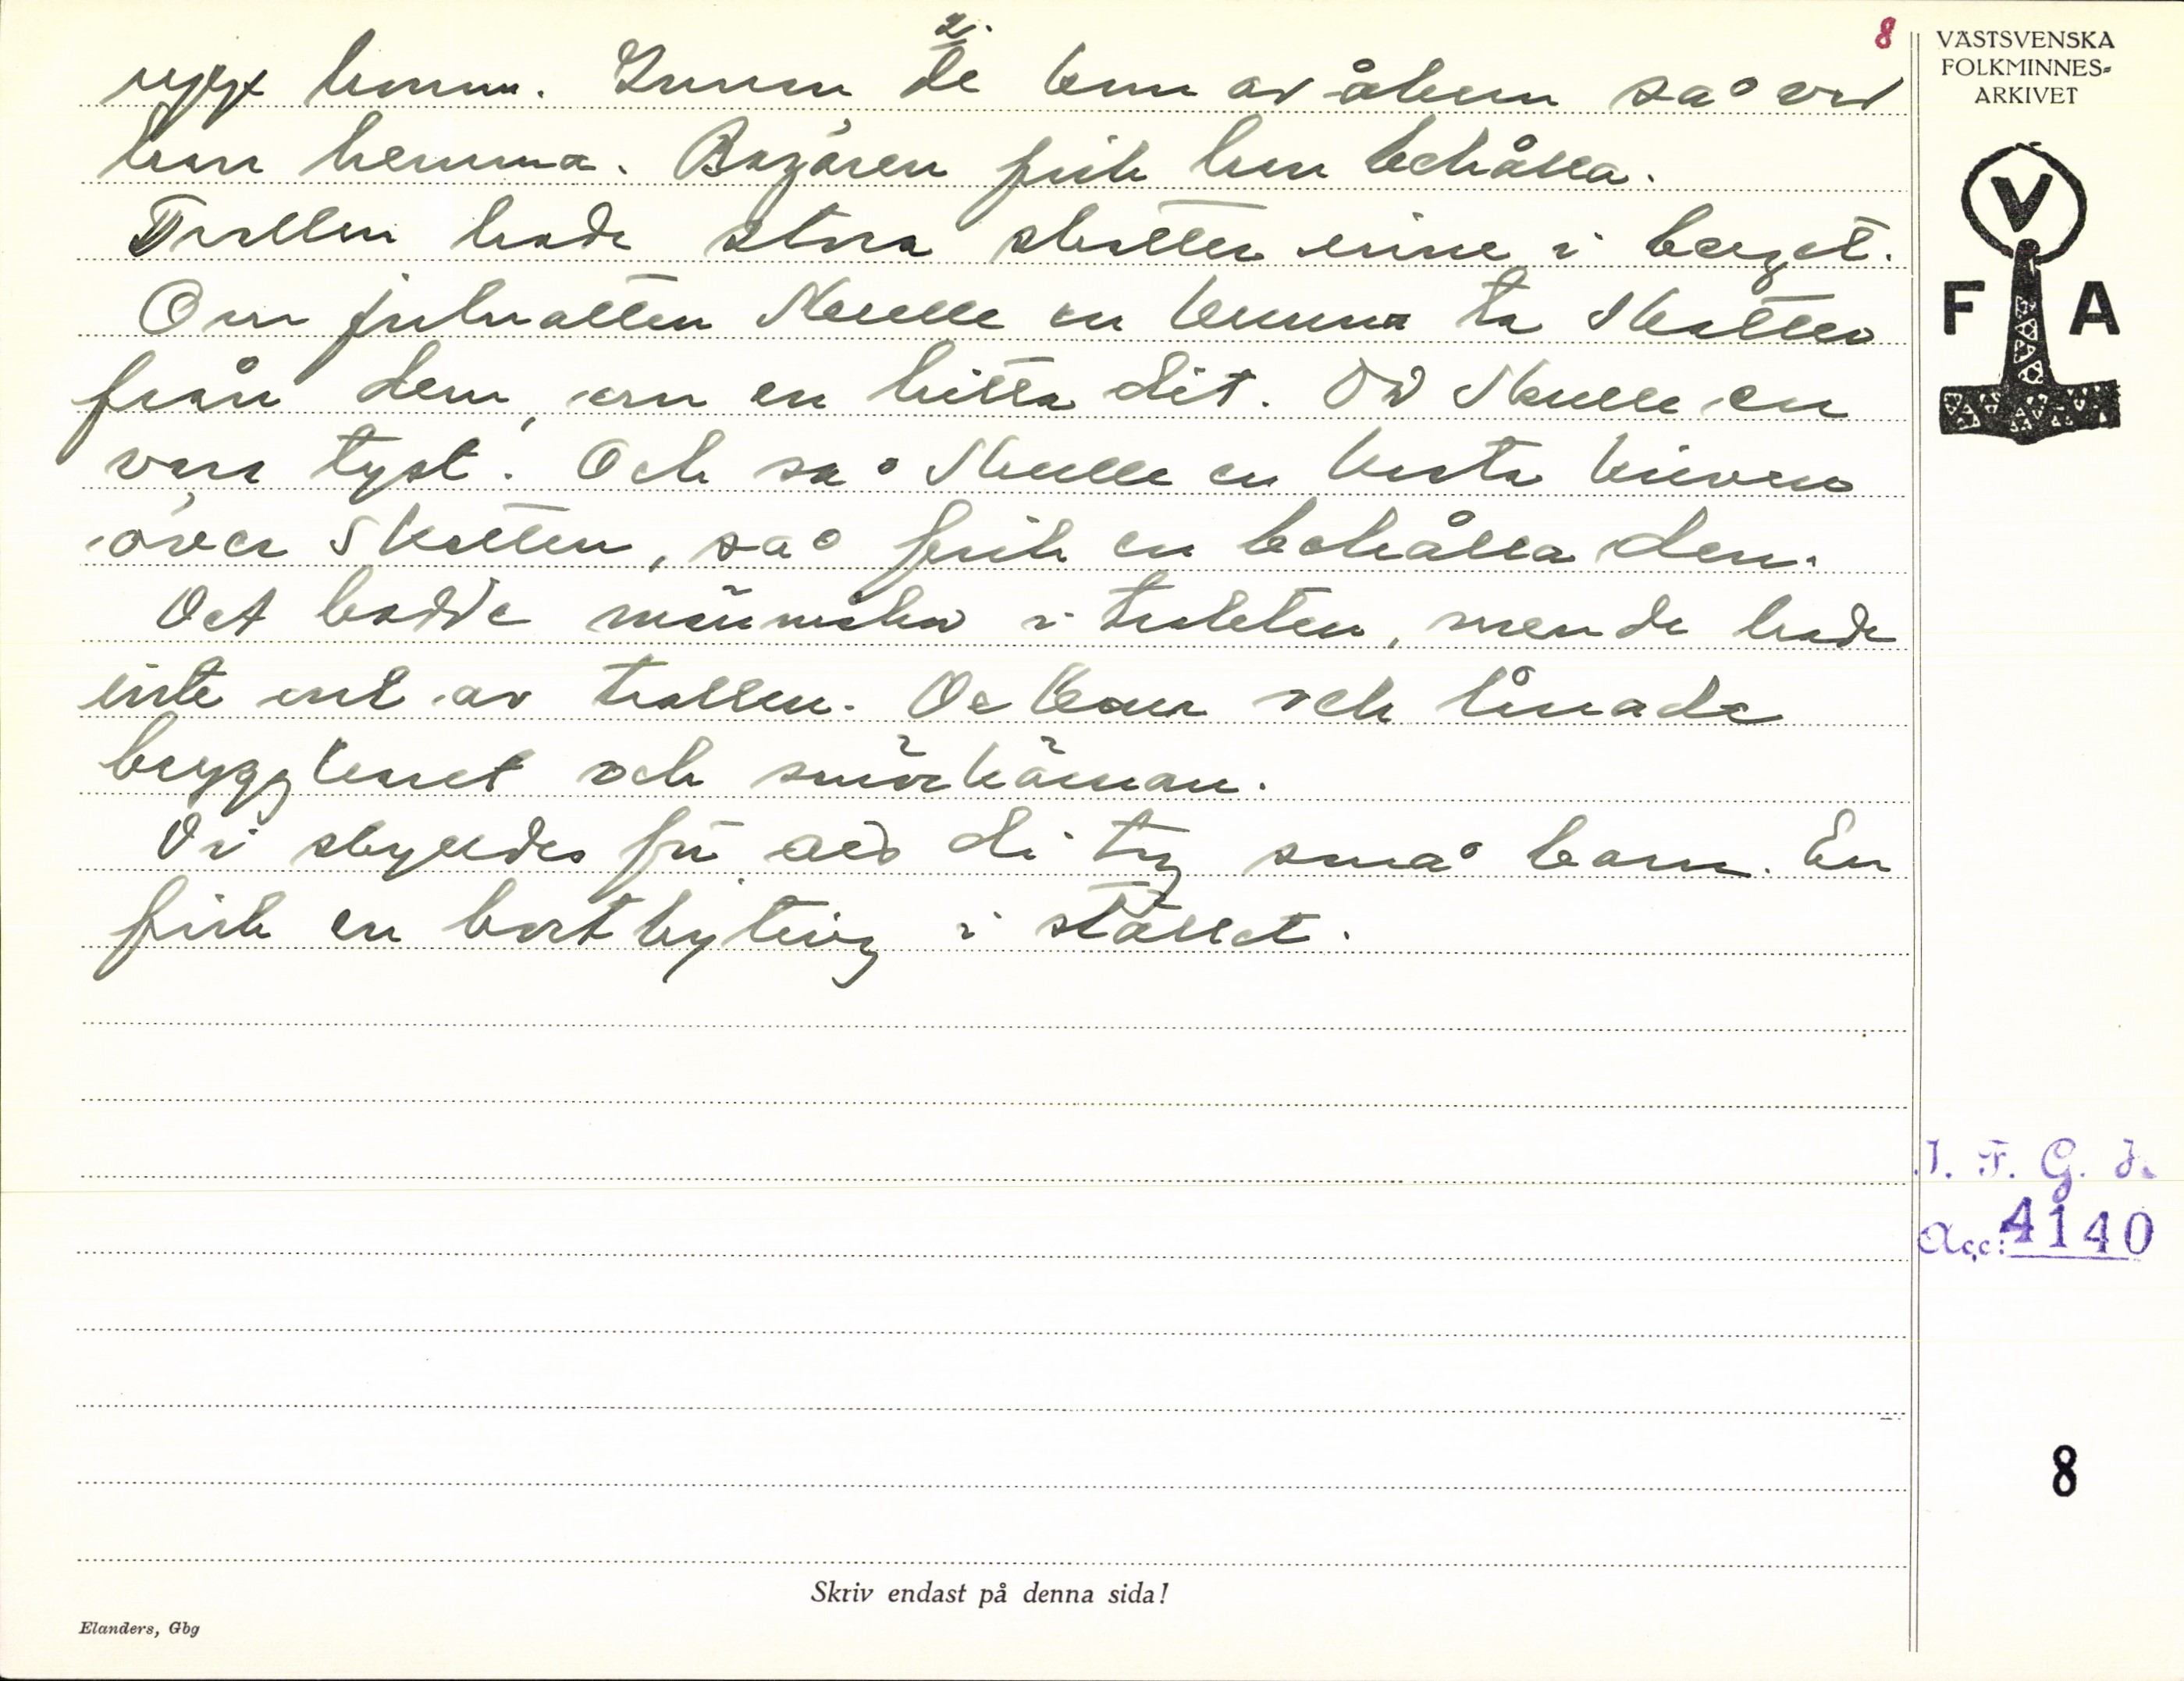 2.
8
rygg honom. Innan de kom av åkern så var
han hemma. Bägaren fick han behålla.
Trollen hade stora skatter inne i berget.
Om julnatten skulle en kunna ta skatter
från dem, om en hitta dit. Då skulle en
vara tyst. Och så skulle en kasta kniven
över skatten, så fick en behålla den.
Det bodde människor i trakten, men de hade
inte ont av trollen. De kom och lånade
bryggkaret och smörkärnan.
Vi skyldes för att di tog små barn. En
fick en bortbyting i stället.
VÄSTSVENSKA
FOLKMINNES-
ARKIVET
V
F A
I. F. G. H.
Acc: 4140
8
Skriv endast på denna sida!
Elanders, Gbg